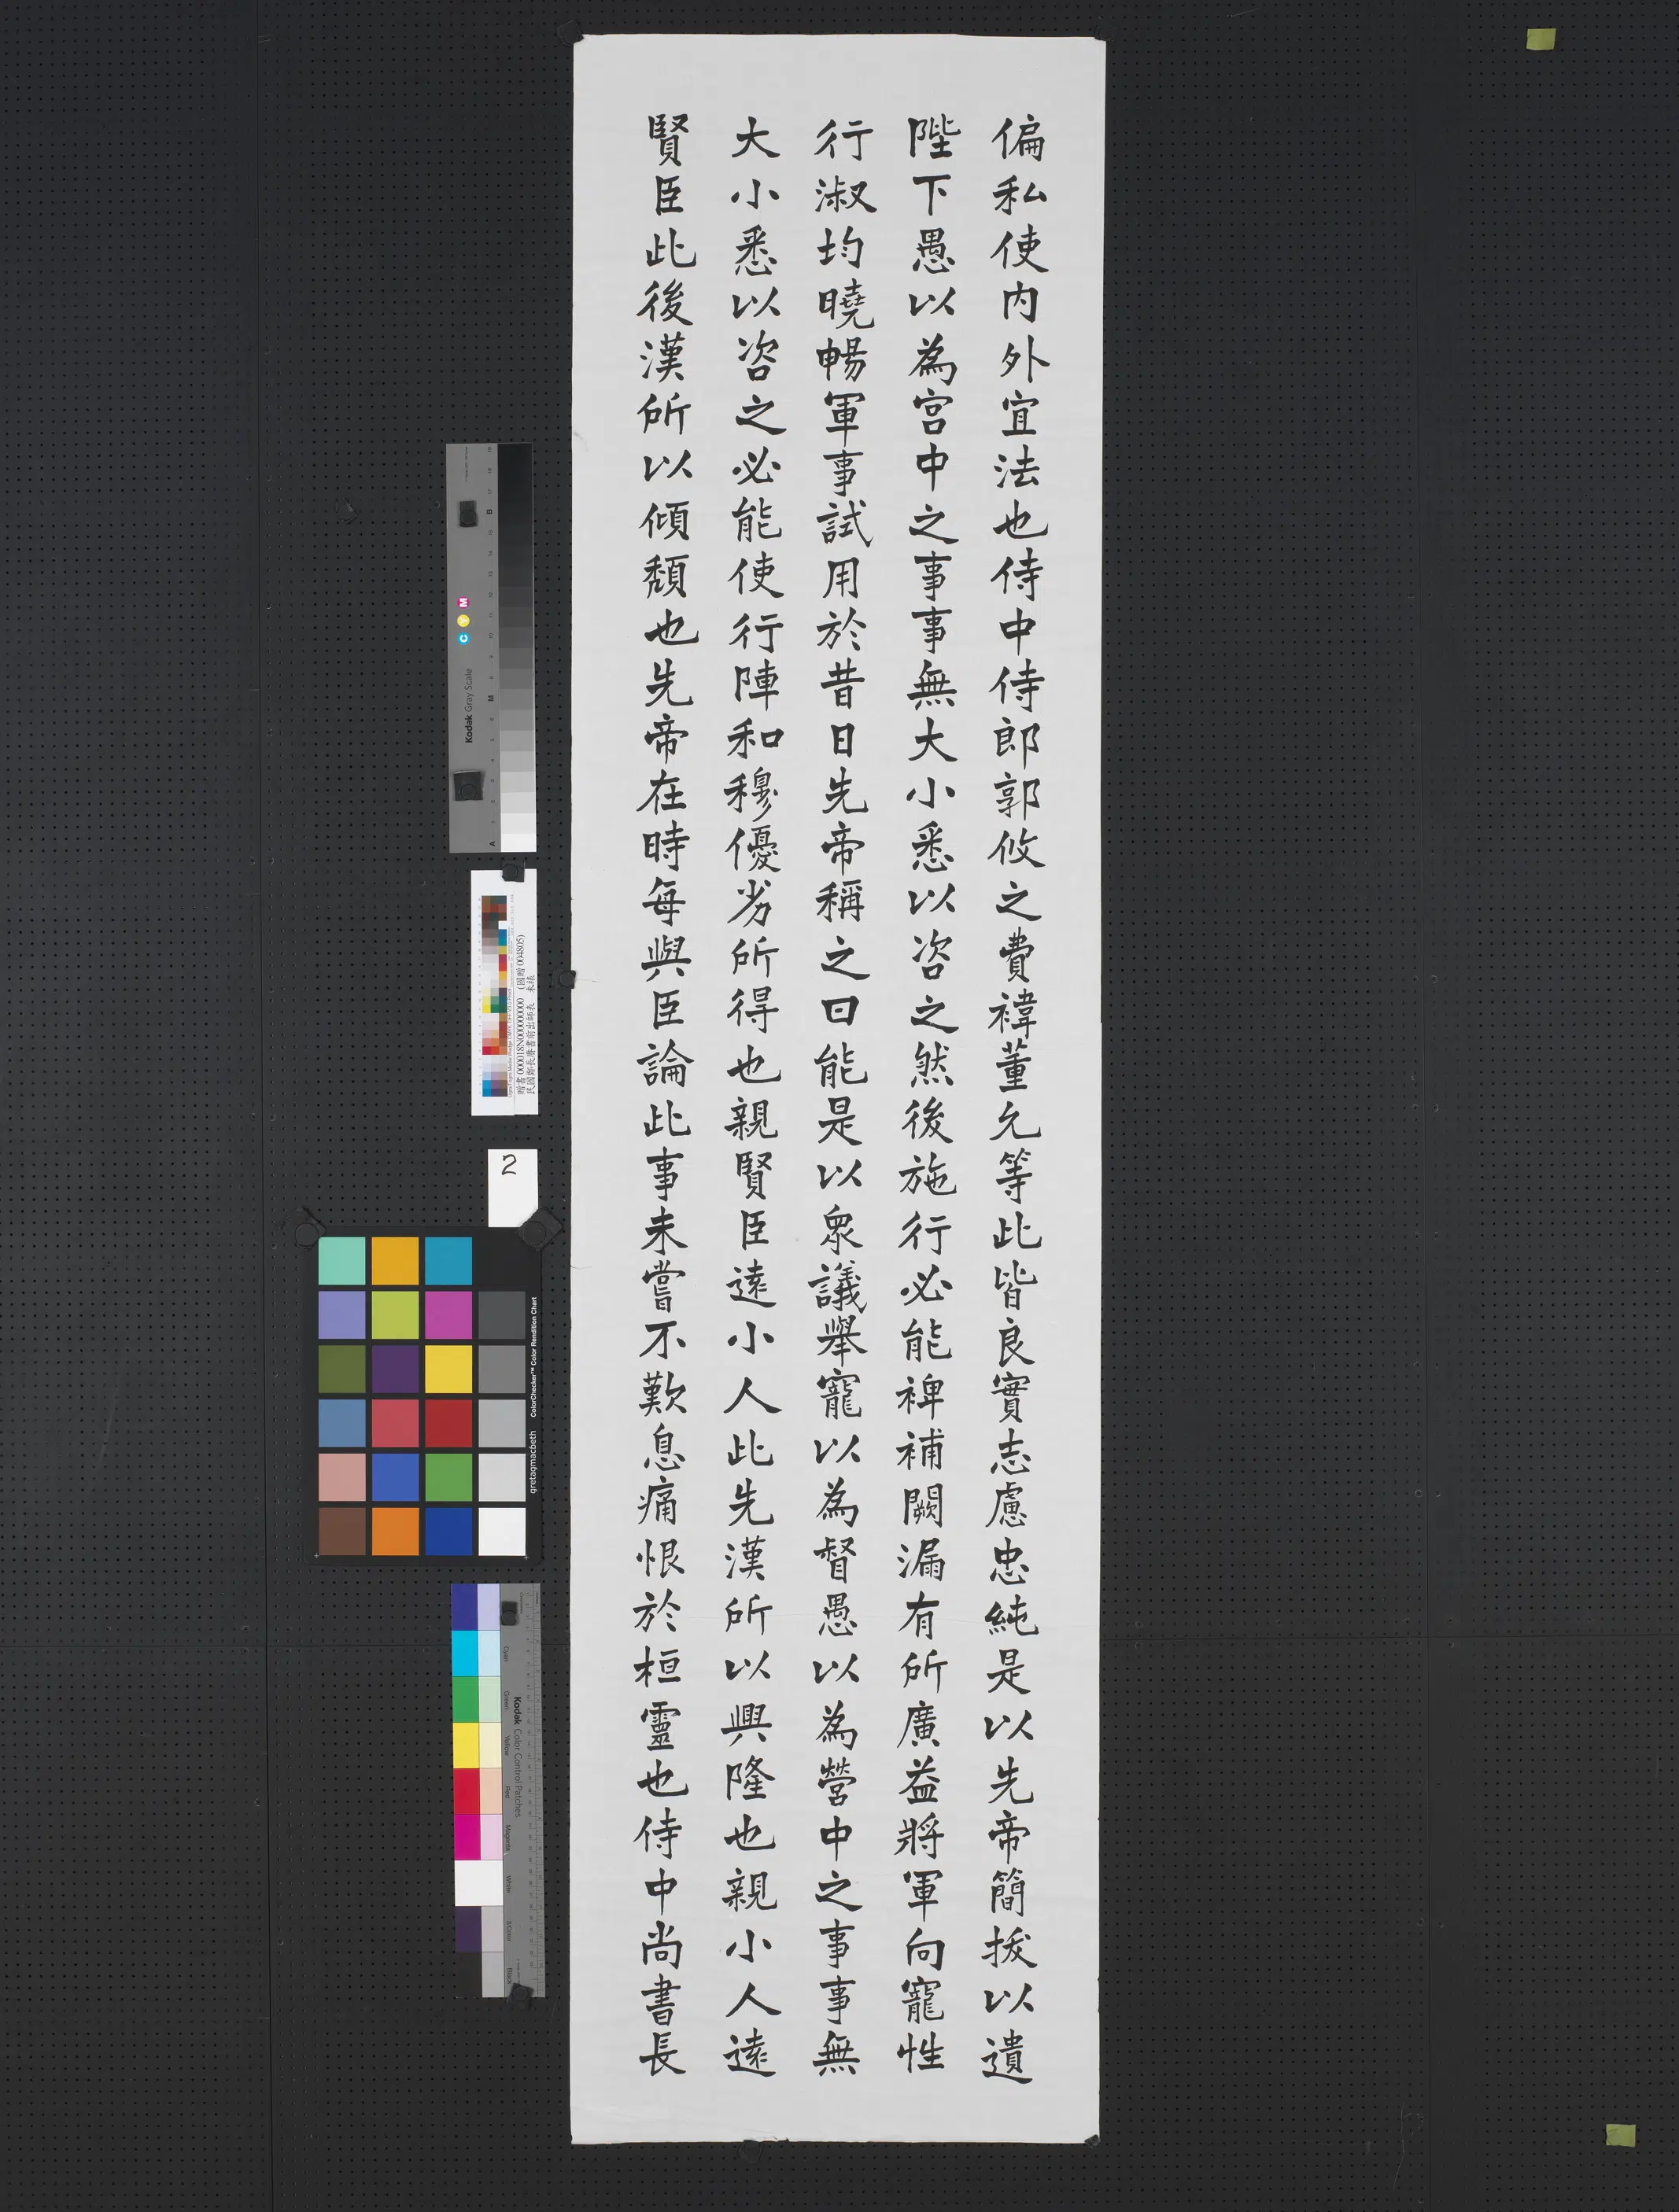 偏私使內外宜法也侍中侍郎郭攸之費禕董允等此皆良實志慮忠純是以先帝簡拔以遺
陛下愚以為宮中之事事無大小悉以咨之然後施行必能裨補闕漏有所廣益將軍向寵性
行淑均曉暢軍事試用於昔日先帝稱之曰能是以眾議舉寵以為督愚以為營中之事事無
大小悉以咨之必能使行陣和穆優劣所得也親賢臣遠小人此先漢所以興隆也親小人遠
賢臣此後漢所以傾頹也先帝在時每與臣論此事未嘗不歎息痛恨於桓靈也侍中尚書長
Kodak Gray Scale
C Y M
A
M
B
贈書000018N000000000 (國贈004805)
民國鄭長庚書前出師表 未裱
2
ColorChecker™ Color Rendition Chart
gretagmacbeth
Kodak Color Control Patches
Cyan
Green
Yellow
Red
Magenta
White
3/Color
Black